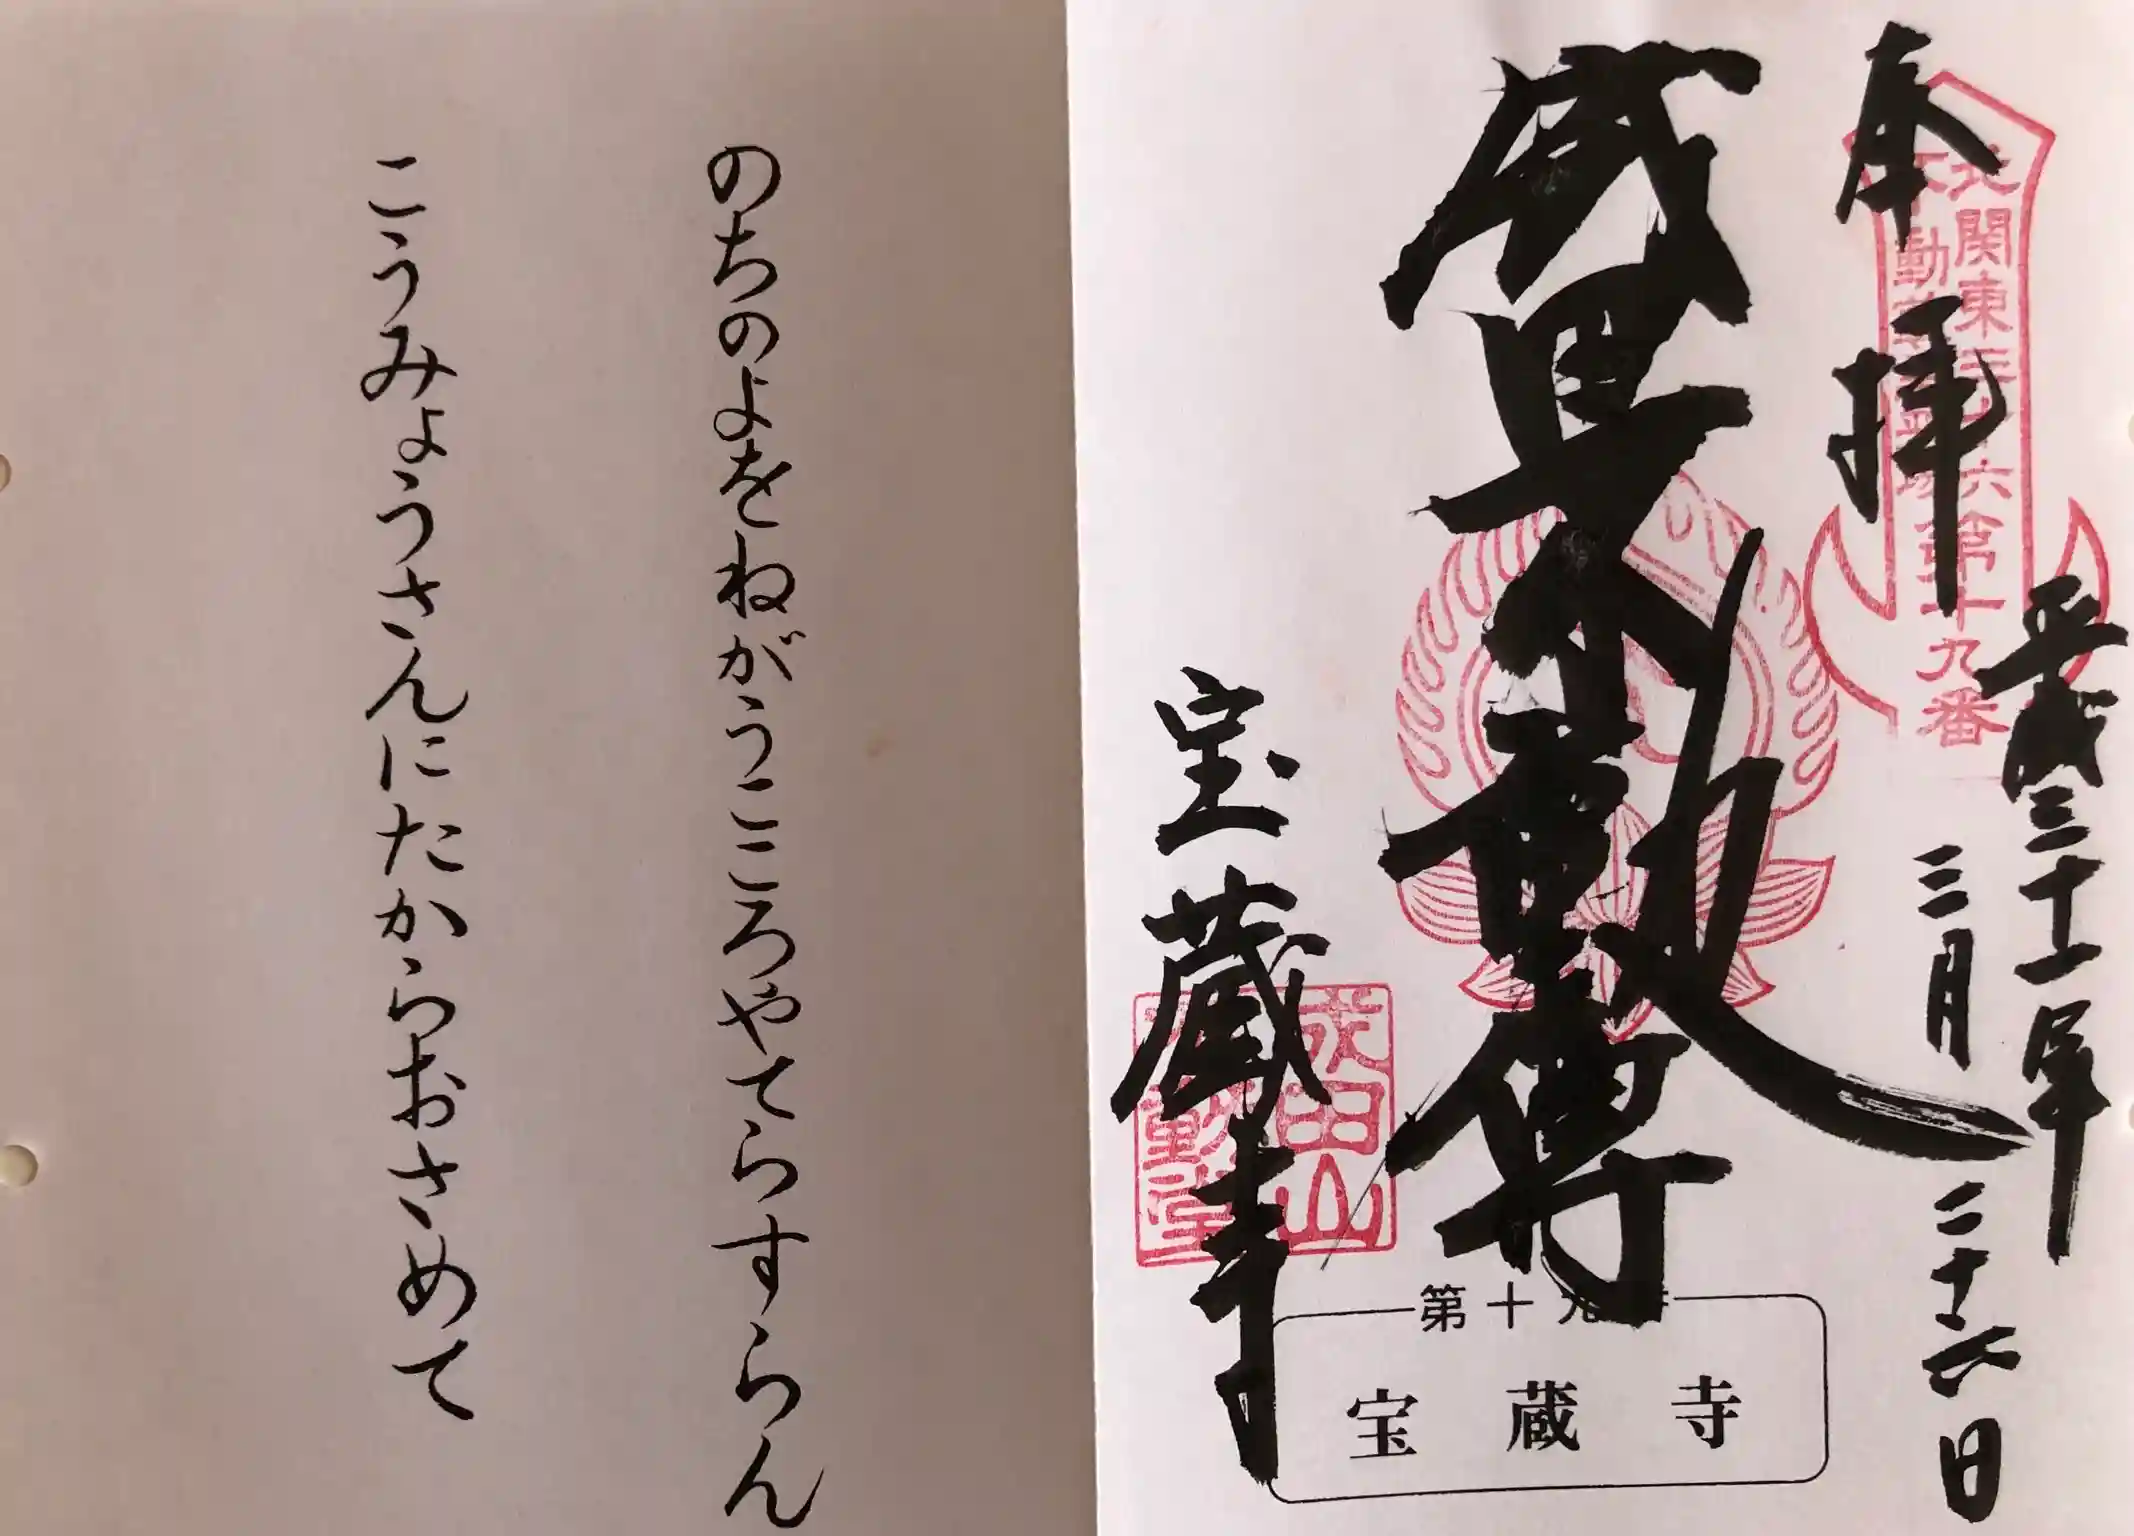 本拝
平成三十一年
三月二十六日
北関東三十六
不動尊霊場
第十九番
不動尊
宝蔵寺
成田山
不動堂
第十九番
宝蔵寺
のちのよをねがうこころやてらすらん
こうみょうさんにたからおさめて